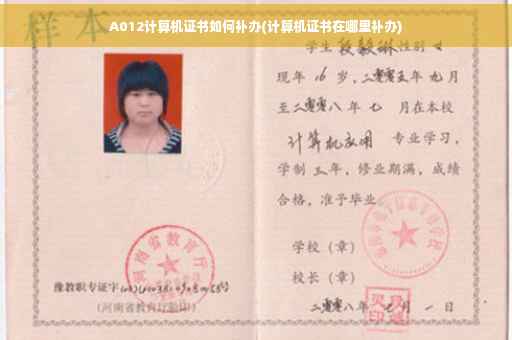 A012计算机证书如何补办(计算机证书在哪里补办)
样本
学生 段毅琳 性别 女
现年 16 岁，二零零五年 九月
至二零零八年 七 月在本校
计算机应用 专业学习，
学制 三 年，修业期满，成绩
合格，准予毕业
学校（章）
校长（章）
二零零八年 七 月 一 日
河南省教育厅
豫教职专证字
(河南省教育厅验印)